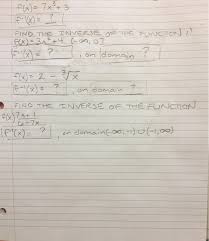 f(x) = 7x³ + 3
f⁻¹(x) = ?
FIND THE INVERSE OF THE FUNCTION
f(x) = 3x² + 4 (-∞, 0]
f⁻¹(x) = ? , on domain ?
f(x) = 2 - ∛x
f⁻¹(x) = ? , on domain ?
FIND THE INVERSE OF THE FUNCTION
f(x) 7x + 1
- 7x
f⁻¹(x) = ? , on domain (-∞, -1) ∪ (-1, ∞)